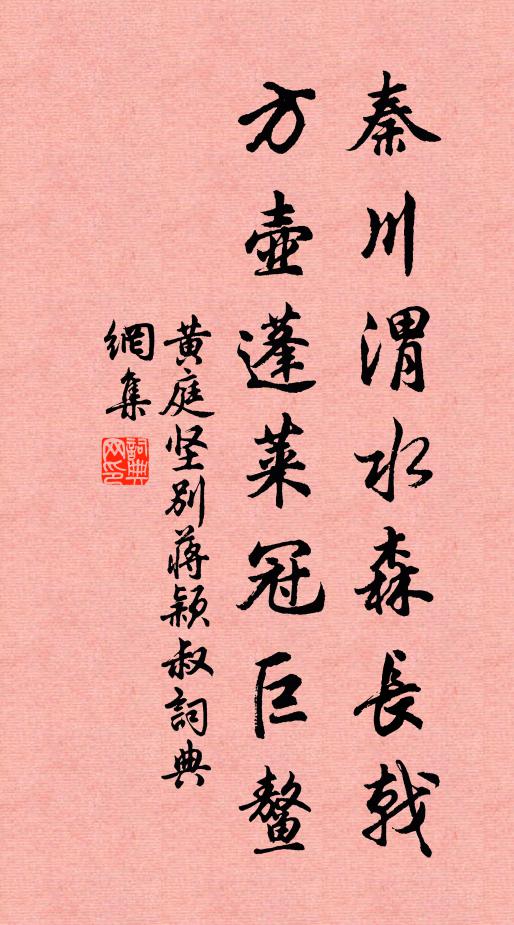 秦川渭水森長戟
方壺蓬莱冠巨鰲
黄庭坚别蔣颖叔詞典
網集
詞典網印